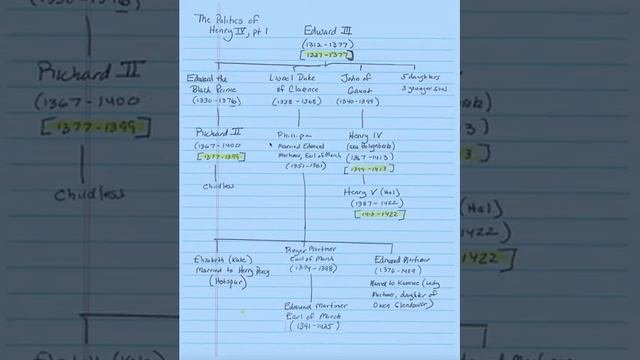 The Politics of
Henry IV, pt 1
Edward III
(1312-1377)
[1327-1377]
Edward the
Black Prince
(1330-1376)
Lionel Duke
of Clarence
(1338-1368)
John of
Gaunt
(1340-1399)
5 daughters
3 younger sons
Richard II
(1367-1400
[1377-1399]
Childless
Married Edmund
Mortimer, Earl of March
Henry IV
(aka Bolingbroke)
(1367-1413)
[1399-1413]
Henry V (Hal)
(1387-1422)
[1413-1422]
Elizabeth (Kate)
Married to Henry Percy
(Hotspur)
Roger Mortimer
Earl of March
(1374-1398)
Edmund Mortimer
Married to
Mortimer, daughter of
Owen Glendower)
Edmund Mortimer
Earl of March
(1391-1425)
Richard II
(1367-1400
[1377-1399]
Childless
(Hal)
1422)
1422]